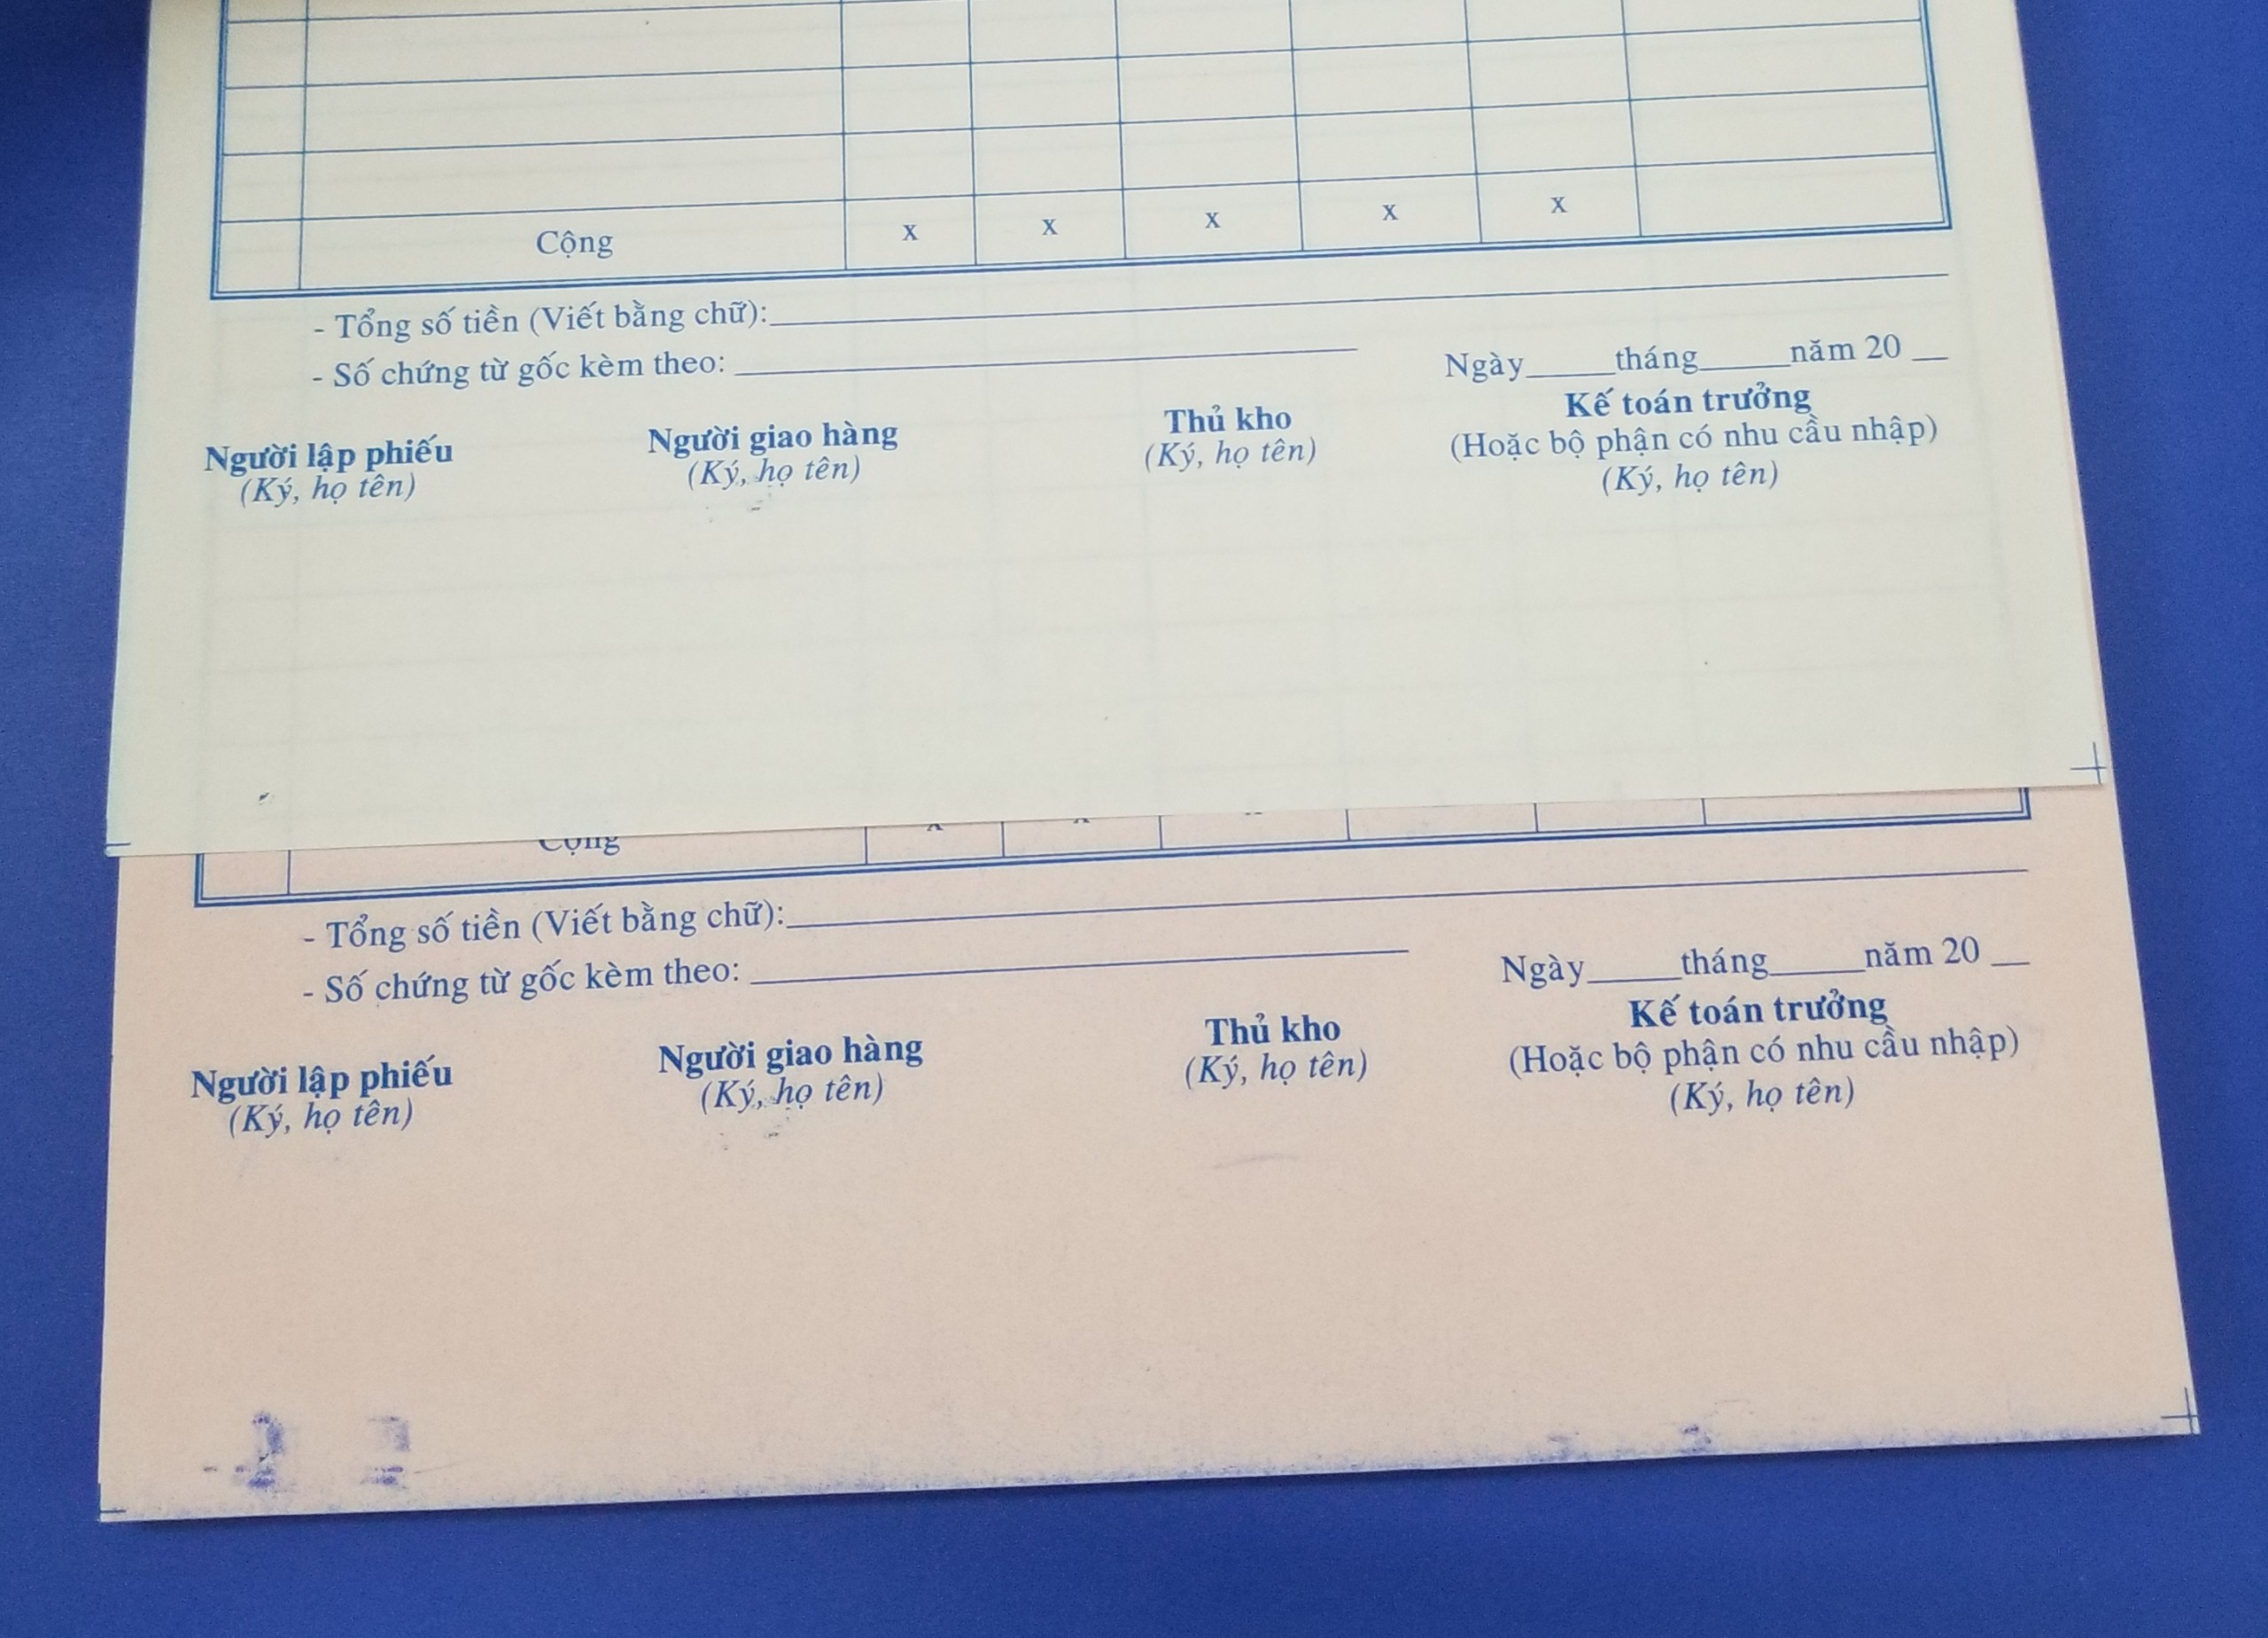 Cộng x x x x x
- Tổng số tiền (Viết bằng chữ):
- Số chứng từ gốc kèm theo:
Ngày_____tháng_____năm 20 __
Người lập phiếu
(Ký, họ tên)
Người giao hàng
(Ký, họ tên)
Thủ kho
(Ký, họ tên)
Kế toán trưởng
(Hoặc bộ phận có nhu cầu nhập)
(Ký, họ tên)
Cộng
- Tổng số tiền (Viết bằng chữ):
- Số chứng từ gốc kèm theo:
Ngày_____tháng_____năm 20 __
Người lập phiếu
(Ký, họ tên)
Người giao hàng
(Ký, họ tên)
Thủ kho
(Ký, họ tên)
Kế toán trưởng
(Hoặc bộ phận có nhu cầu nhập)
(Ký, họ tên)